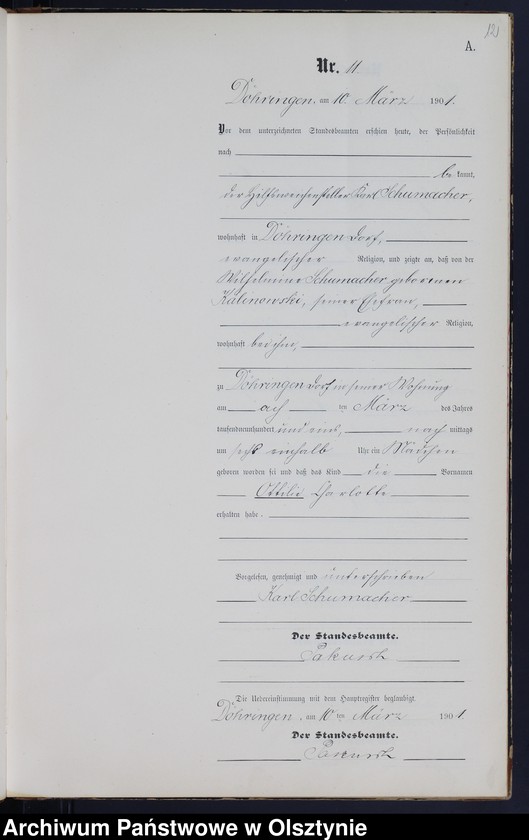 12
A.
Nr. 11.
Döhringen, am 10. März 1901.
Vor dem unterzeichneten Standesbeamten erschien heute, der Persönlichkeit
nach
be kannt,
der Hilfsweichensteller Karl Schumacher,
wohnhaft in Döhringen Dorf,
evangelischer Religion, und zeigte an, daß von der
Wilhelmine Schumacher geborenen
Kalinowski, seiner Ehefrau,
evangelischer Religion,
wohnhaft bei ihm,
zu Döhringen Dorf in seiner Wohnung
am ach ten März des Jahres
tausendneunhundert und eins, nach mittags
um sechs einhalb Uhr ein Mädchen
geboren worden sei und daß das Kind die Vornamen
Ottilie Charlotte
erhalten habe.
Vorgelesen, genehmigt und unterschrieben
Karl Schumacher
Der Standesbeamte.
Pakusch
Die Uebereinstimmung mit dem Hauptregister beglaubigt.
Döhringen, am 10 ten März 1901.
Der Standesbeamte.
Pakusch
Archiwum Państwowe w Olsztynie